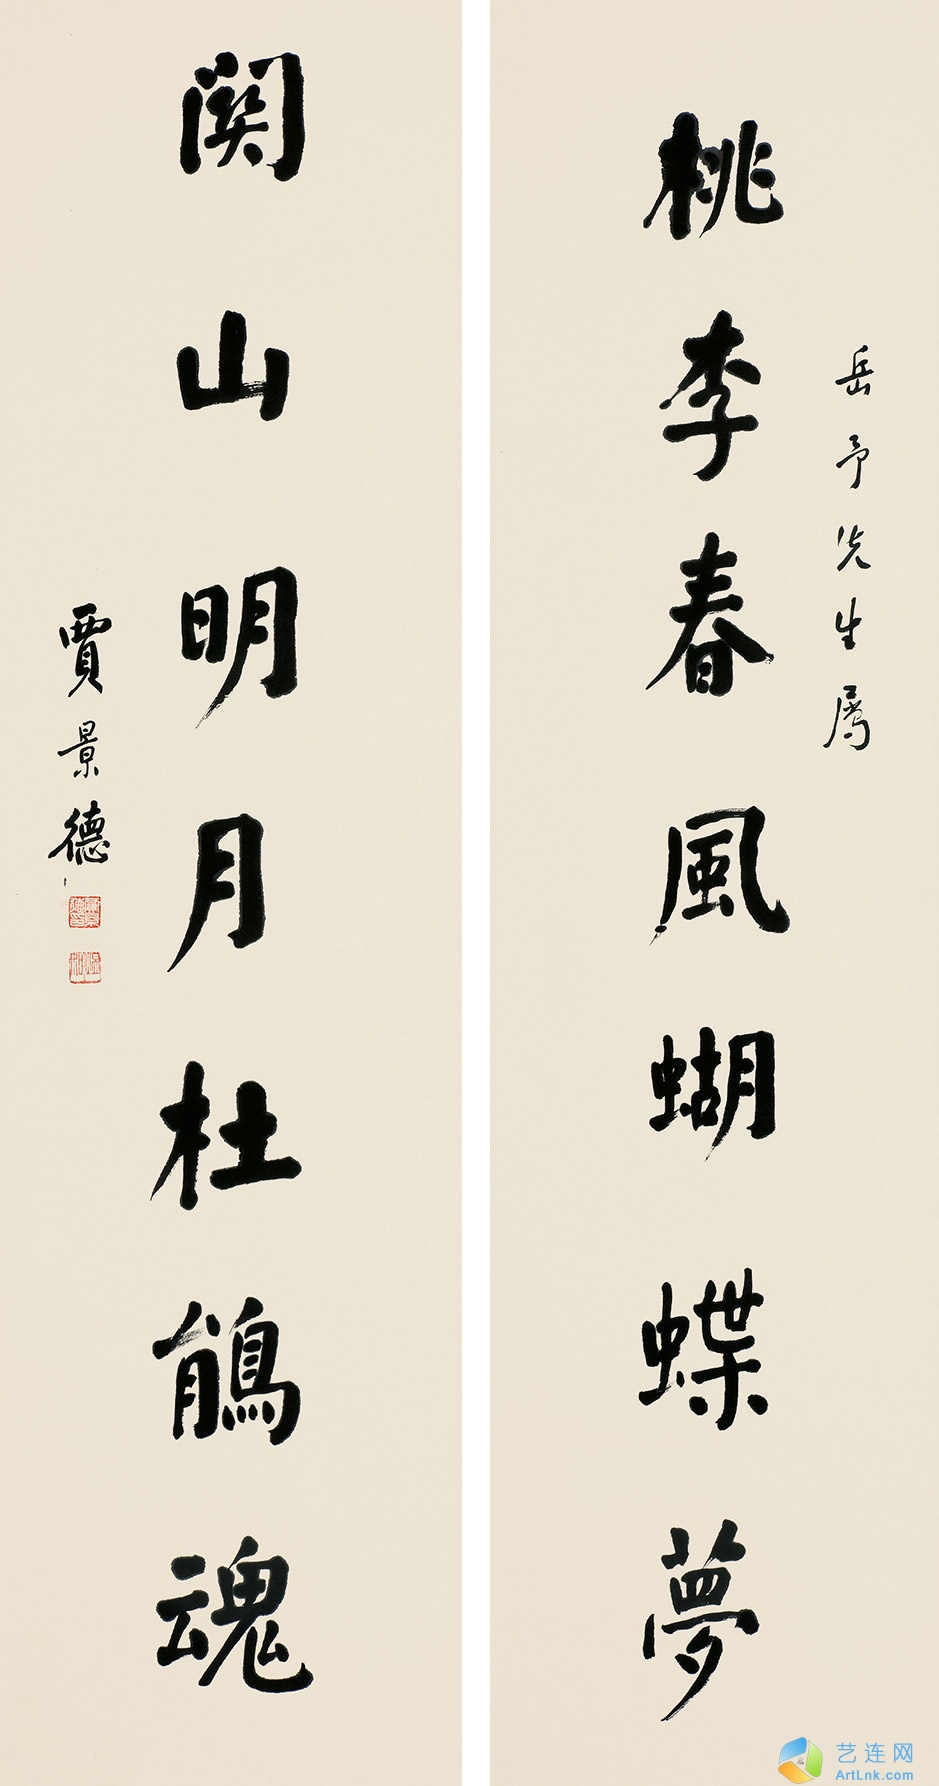 岳予先生属
桃李春風蝴蝶夢
関山明月杜鵑魂
賈景德
艺连网
ArtLnk.com